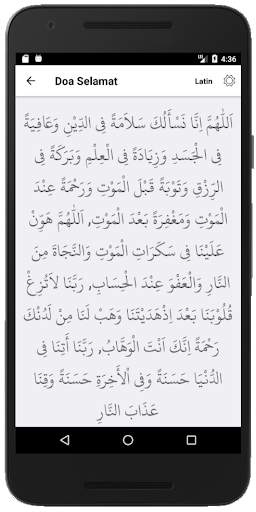 4:36
Doa Selamat
Latin
اَللّٰهُمَّ اِنَّا نَسْأَلُكَ سَلَامَةً فِى الدِّيْنِ وَعَافِيَةً
فِى الْجَسَدِ وَزِيَادَةً فِى الْعِلْمِ وَبَرَكَةً فِى
الرِّزْقِ وَتَوْبَةً قَبْلَ الْمَوْتِ وَرَحْمَةً عِنْدَ
الْمَوْتِ وَمَغْفِرَةً بَعْدَ الْمَوْتِ, اَللّٰهُمَّ هَوِّنْ
عَلَيْنَا فِى سَكَرَاتِ الْمَوْتِ وَالنَّجَاةَ مِنَ
النَّارِ وَالْعَفْوَ عِنْدَ الْحِسَابِ, رَبَّنَا لَاتُزِغْ
قُلُوْبَنَا بَعْدَ اِذْهَدَيْتَنَا وَهَبْ لَنَا مِنْ لَدُنْكَ
رَحْمَةً اِنَّكَ اَنْتَ الْوَهَّابُ, رَبَّنَا أَتِنَا فِى
الدُّنْيَا حَسَنَةً وَفِى الْأَخِرَةِ حَسَنَةً وَقِنَا
عَذَابَ النَّارِ